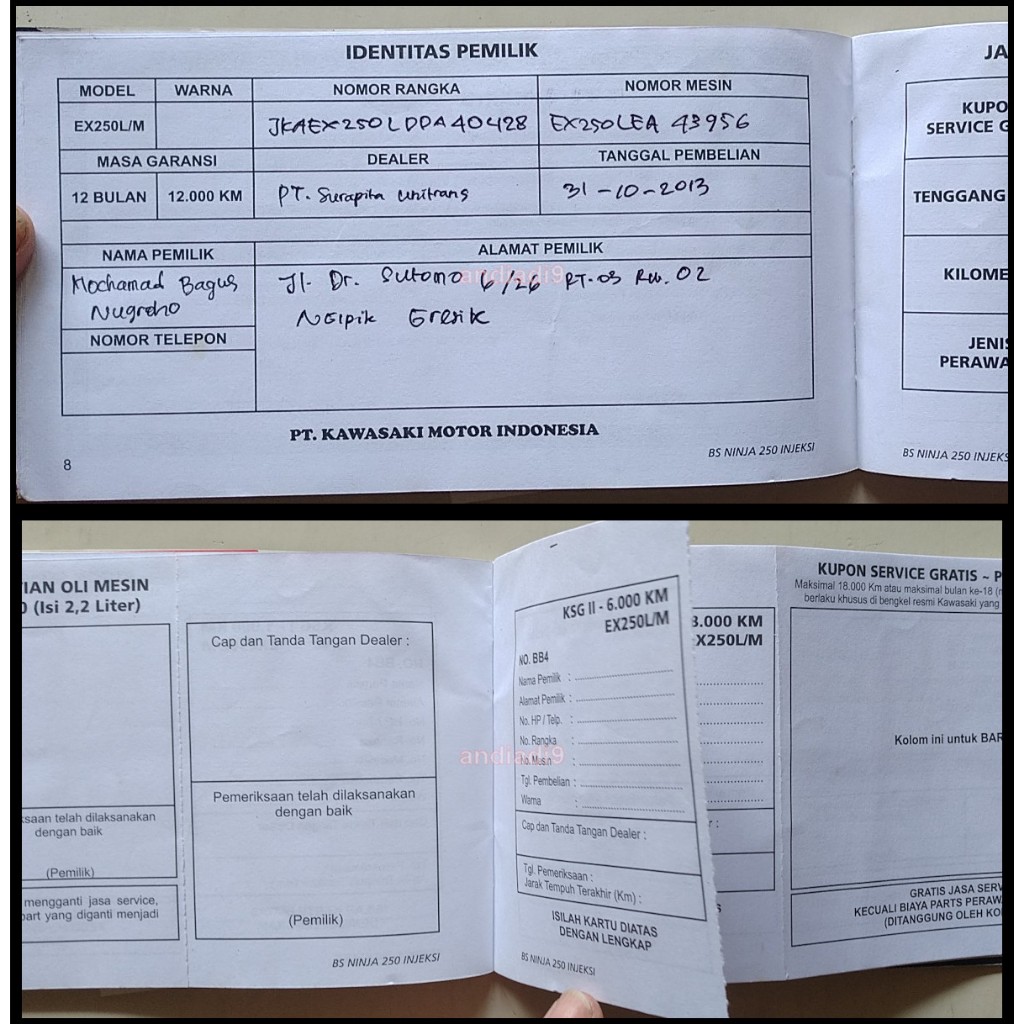 IDENTITAS PEMILIK
MODEL WARNA NOMOR RANGKA NOMOR MESIN
EX250L/M JKAEX250LDDA40428 EX250LEA 43956
MASA GARANSI DEALER TANGGAL PEMBELIAN
12 BULAN 12.000 KM PT. Surapita Unitrans 31-10-2013
NAMA PEMILIK ALAMAT PEMILIK
Mochamad Bagus Jl. Dr. Sutomo 6/26 RT.03 RW. 02
Nugroho Ngipik Gresik
NOMOR TELEPON
andiadi9
PT. KAWASAKI MOTOR INDONESIA
8
BS NINJA 250 INJEKSI
JA
KUPO
SERVICE G
TENGGANG
KILOME
JENIS
PERAWA
BS NINJA 250 INJEKS
IAN OLI MESIN
(Isi 2,2 Liter)
saan telah dilaksanakan
dengan baik
(Pemilik)
mengganti jasa service,
part yang diganti menjadi
Cap dan Tanda Tangan Dealer :
Pemeriksaan telah dilaksanakan
dengan baik
(Pemilik)
BS NINJA 250 INJEKSI
KSG II - 6.000 KM
EX250L/M
NO. BB4
Nama Pemilik :
Alamat Pemilik :
No. HP / Telp. :
No. Rangka :
No. Mesin :
Tgl. Pembelian :
Warna :
andiadi9
Cap dan Tanda Tangan Dealer :
Tgl. Pemeriksaan :
Jarak Tempuh Terakhir (Km) :
ISILAH KARTU DIATAS
DENGAN LENGKAP
BS NINJA 250 INJEKSI
3.000 KM
X250L/M
KUPON SERVICE GRATIS ~ P
Maksimal 18.000 Km atau maksimal bulan ke-18
berlaku khusus di bengkel resmi Kawasaki yang
Kolom ini untuk BAR
GRATIS JASA SERV
KECUALI BIAYA PARTS PERAW
(DITANGGUNG OLEH KO